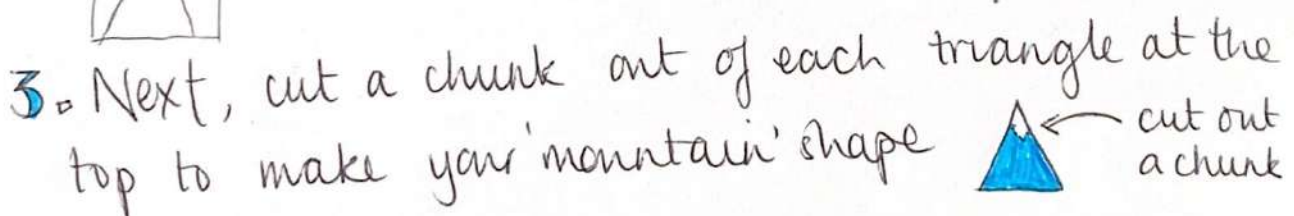 3. Next, cut a chunk out of each triangle at the
top to make your 'mountain' shape
cut out
a chunk